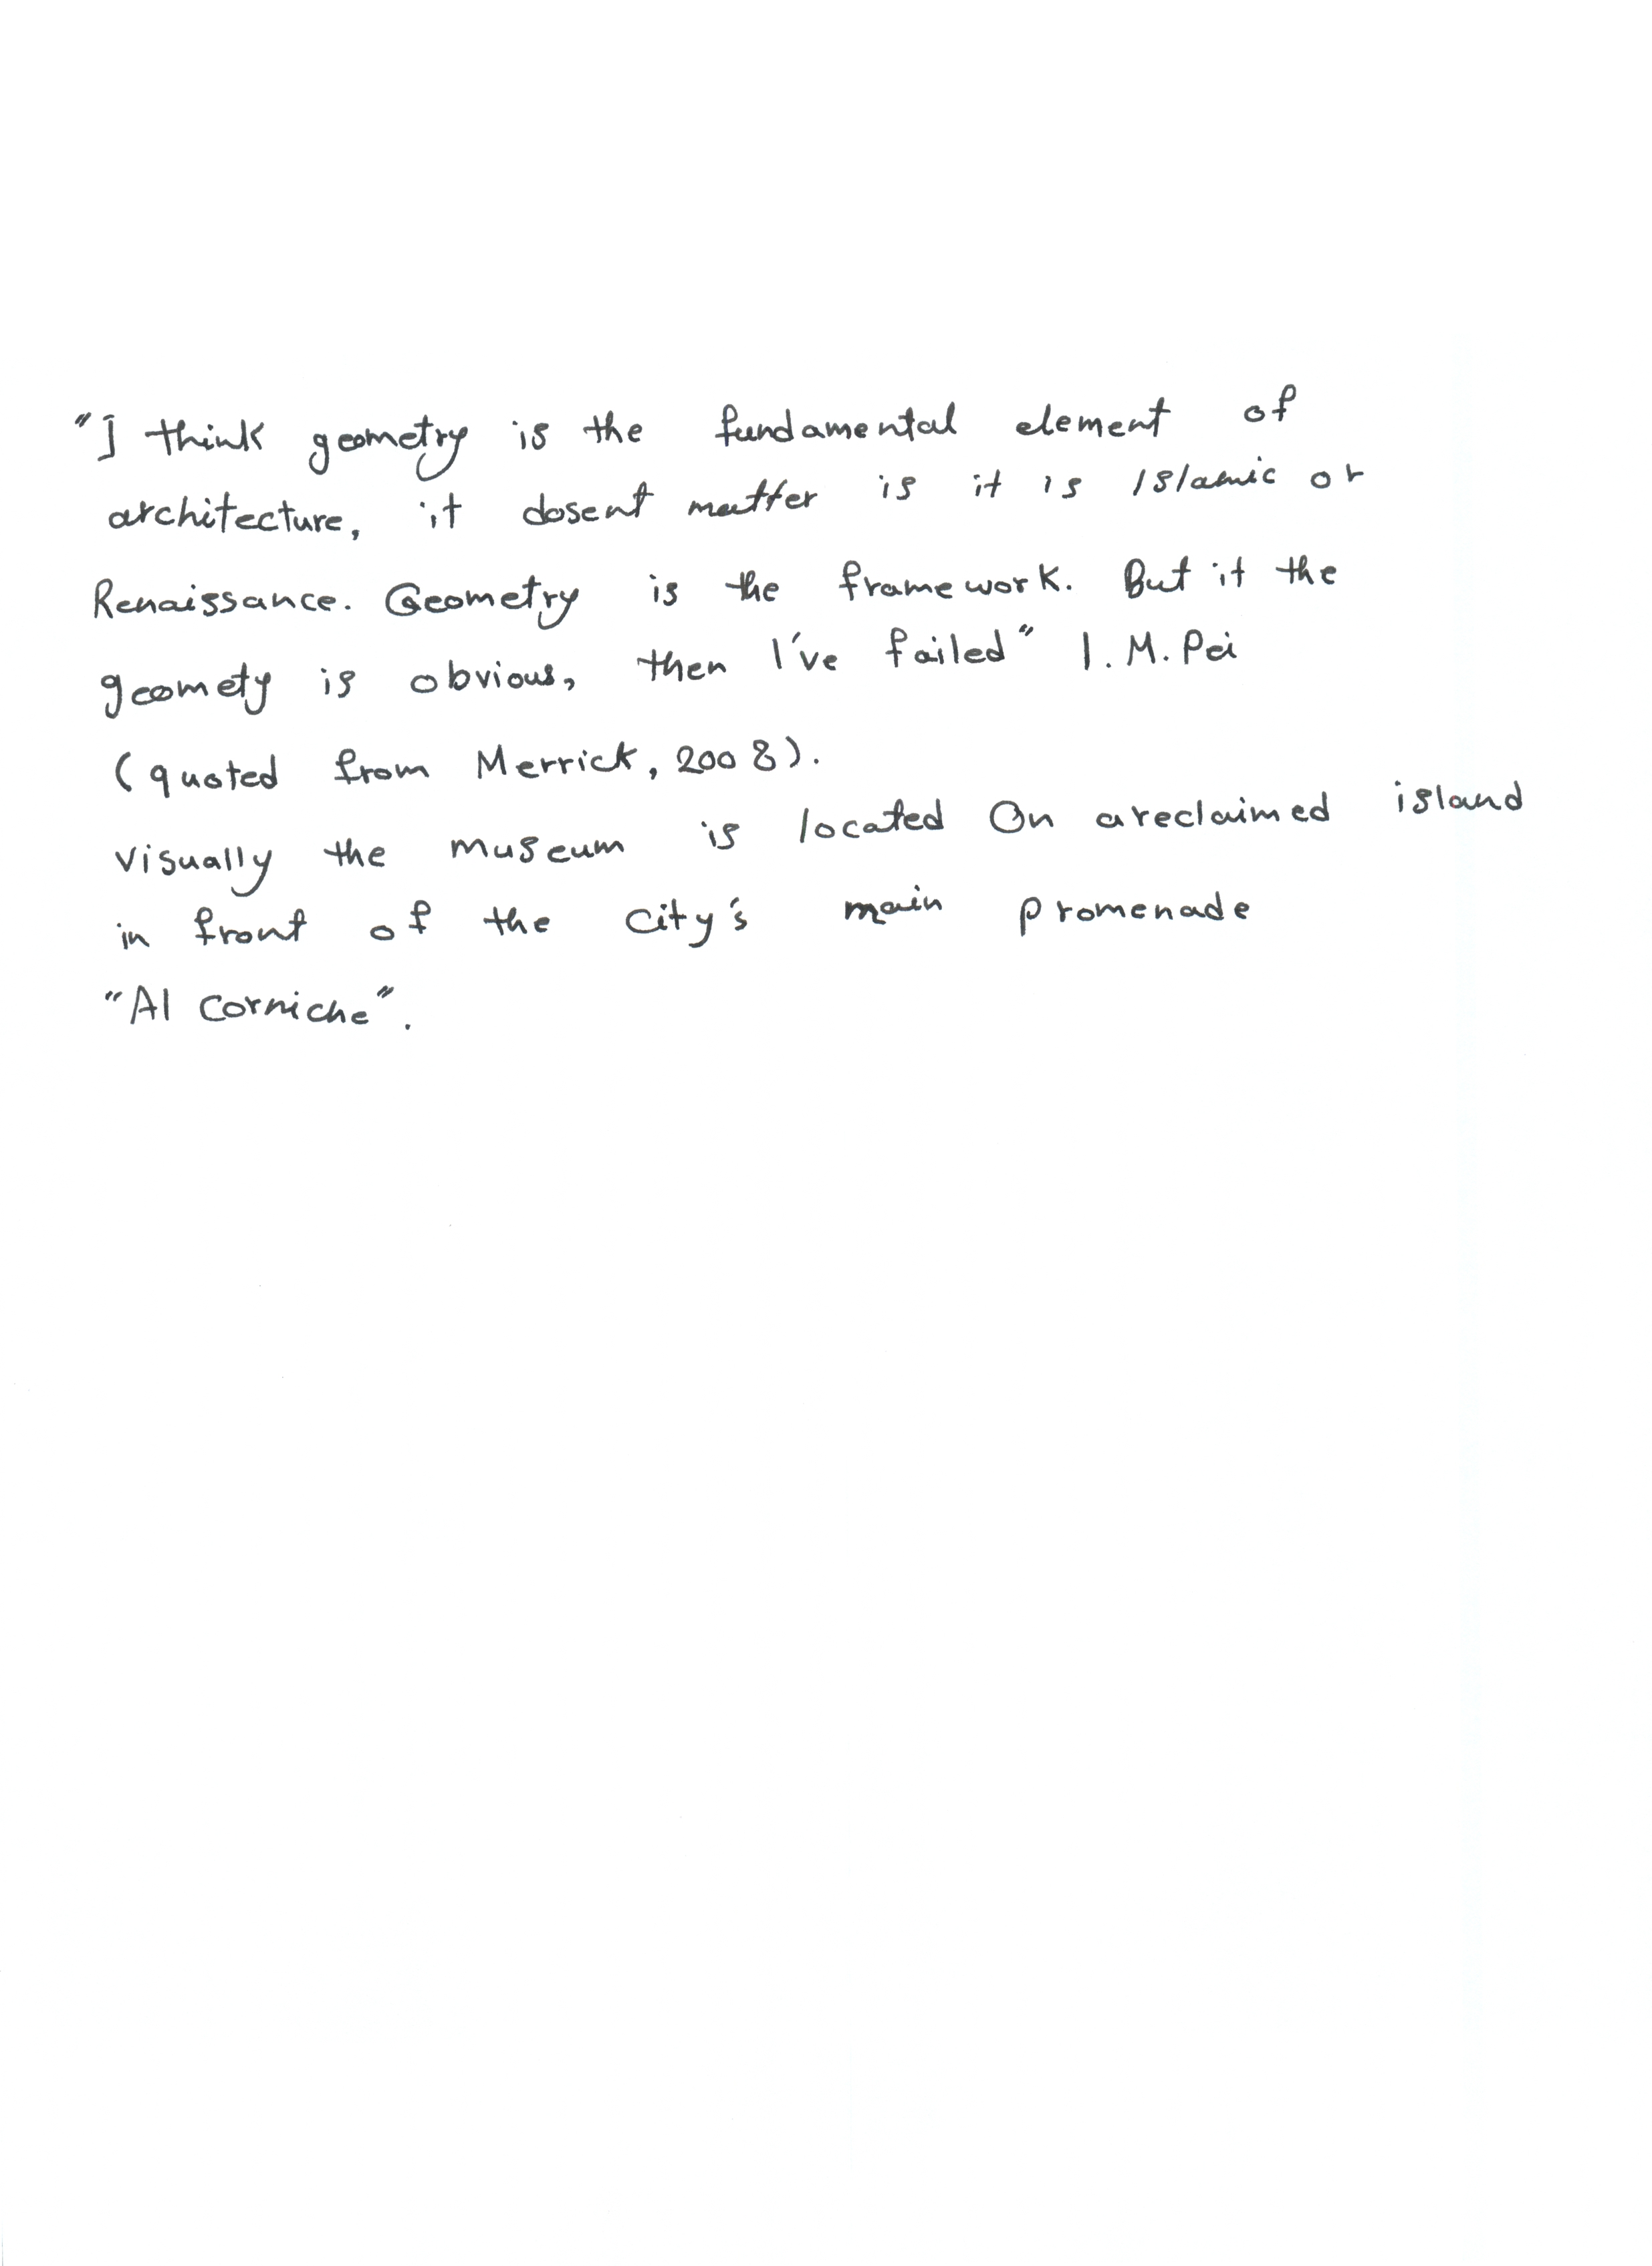 "I think geometry is the fundamental element of
architecture, it dosent matter is it is Islamic or
Renaissance. Geometry is the framework. But it the
geomety is obvious, then I've failed" I.M.Pei
(quoted from Merrick, 2008).
visually the museum is located On areclaimed island
in front of the City's main promenade
"Al Corniche".